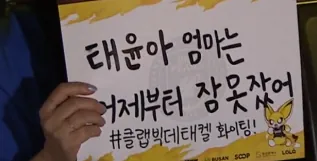 태윤아 엄마는
어제부터 잠못잤어
#클랩빅데태켈 화이팅!
BUSAN SCOOP LOLO